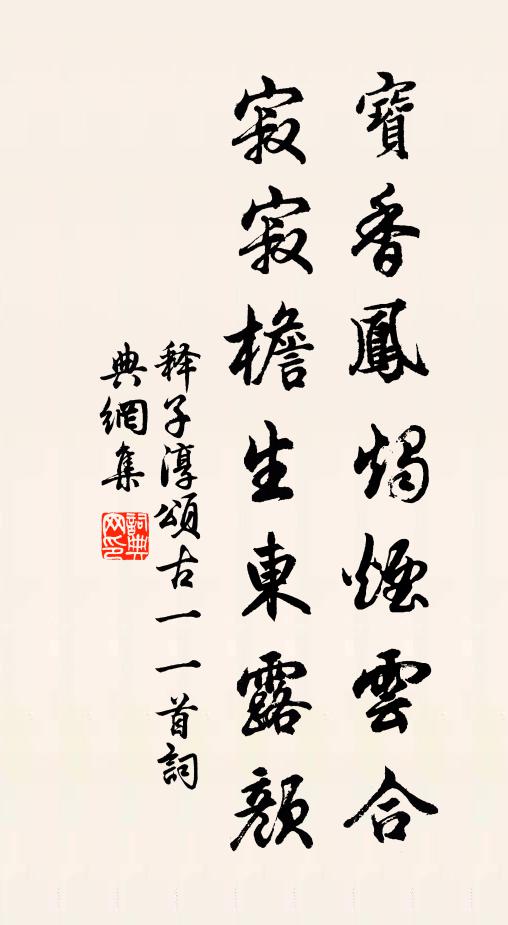 寶香鳳燭煙雲合
寂寂檐生東露顏
釋子淳頌古一一首詞
典網集
詞典網印